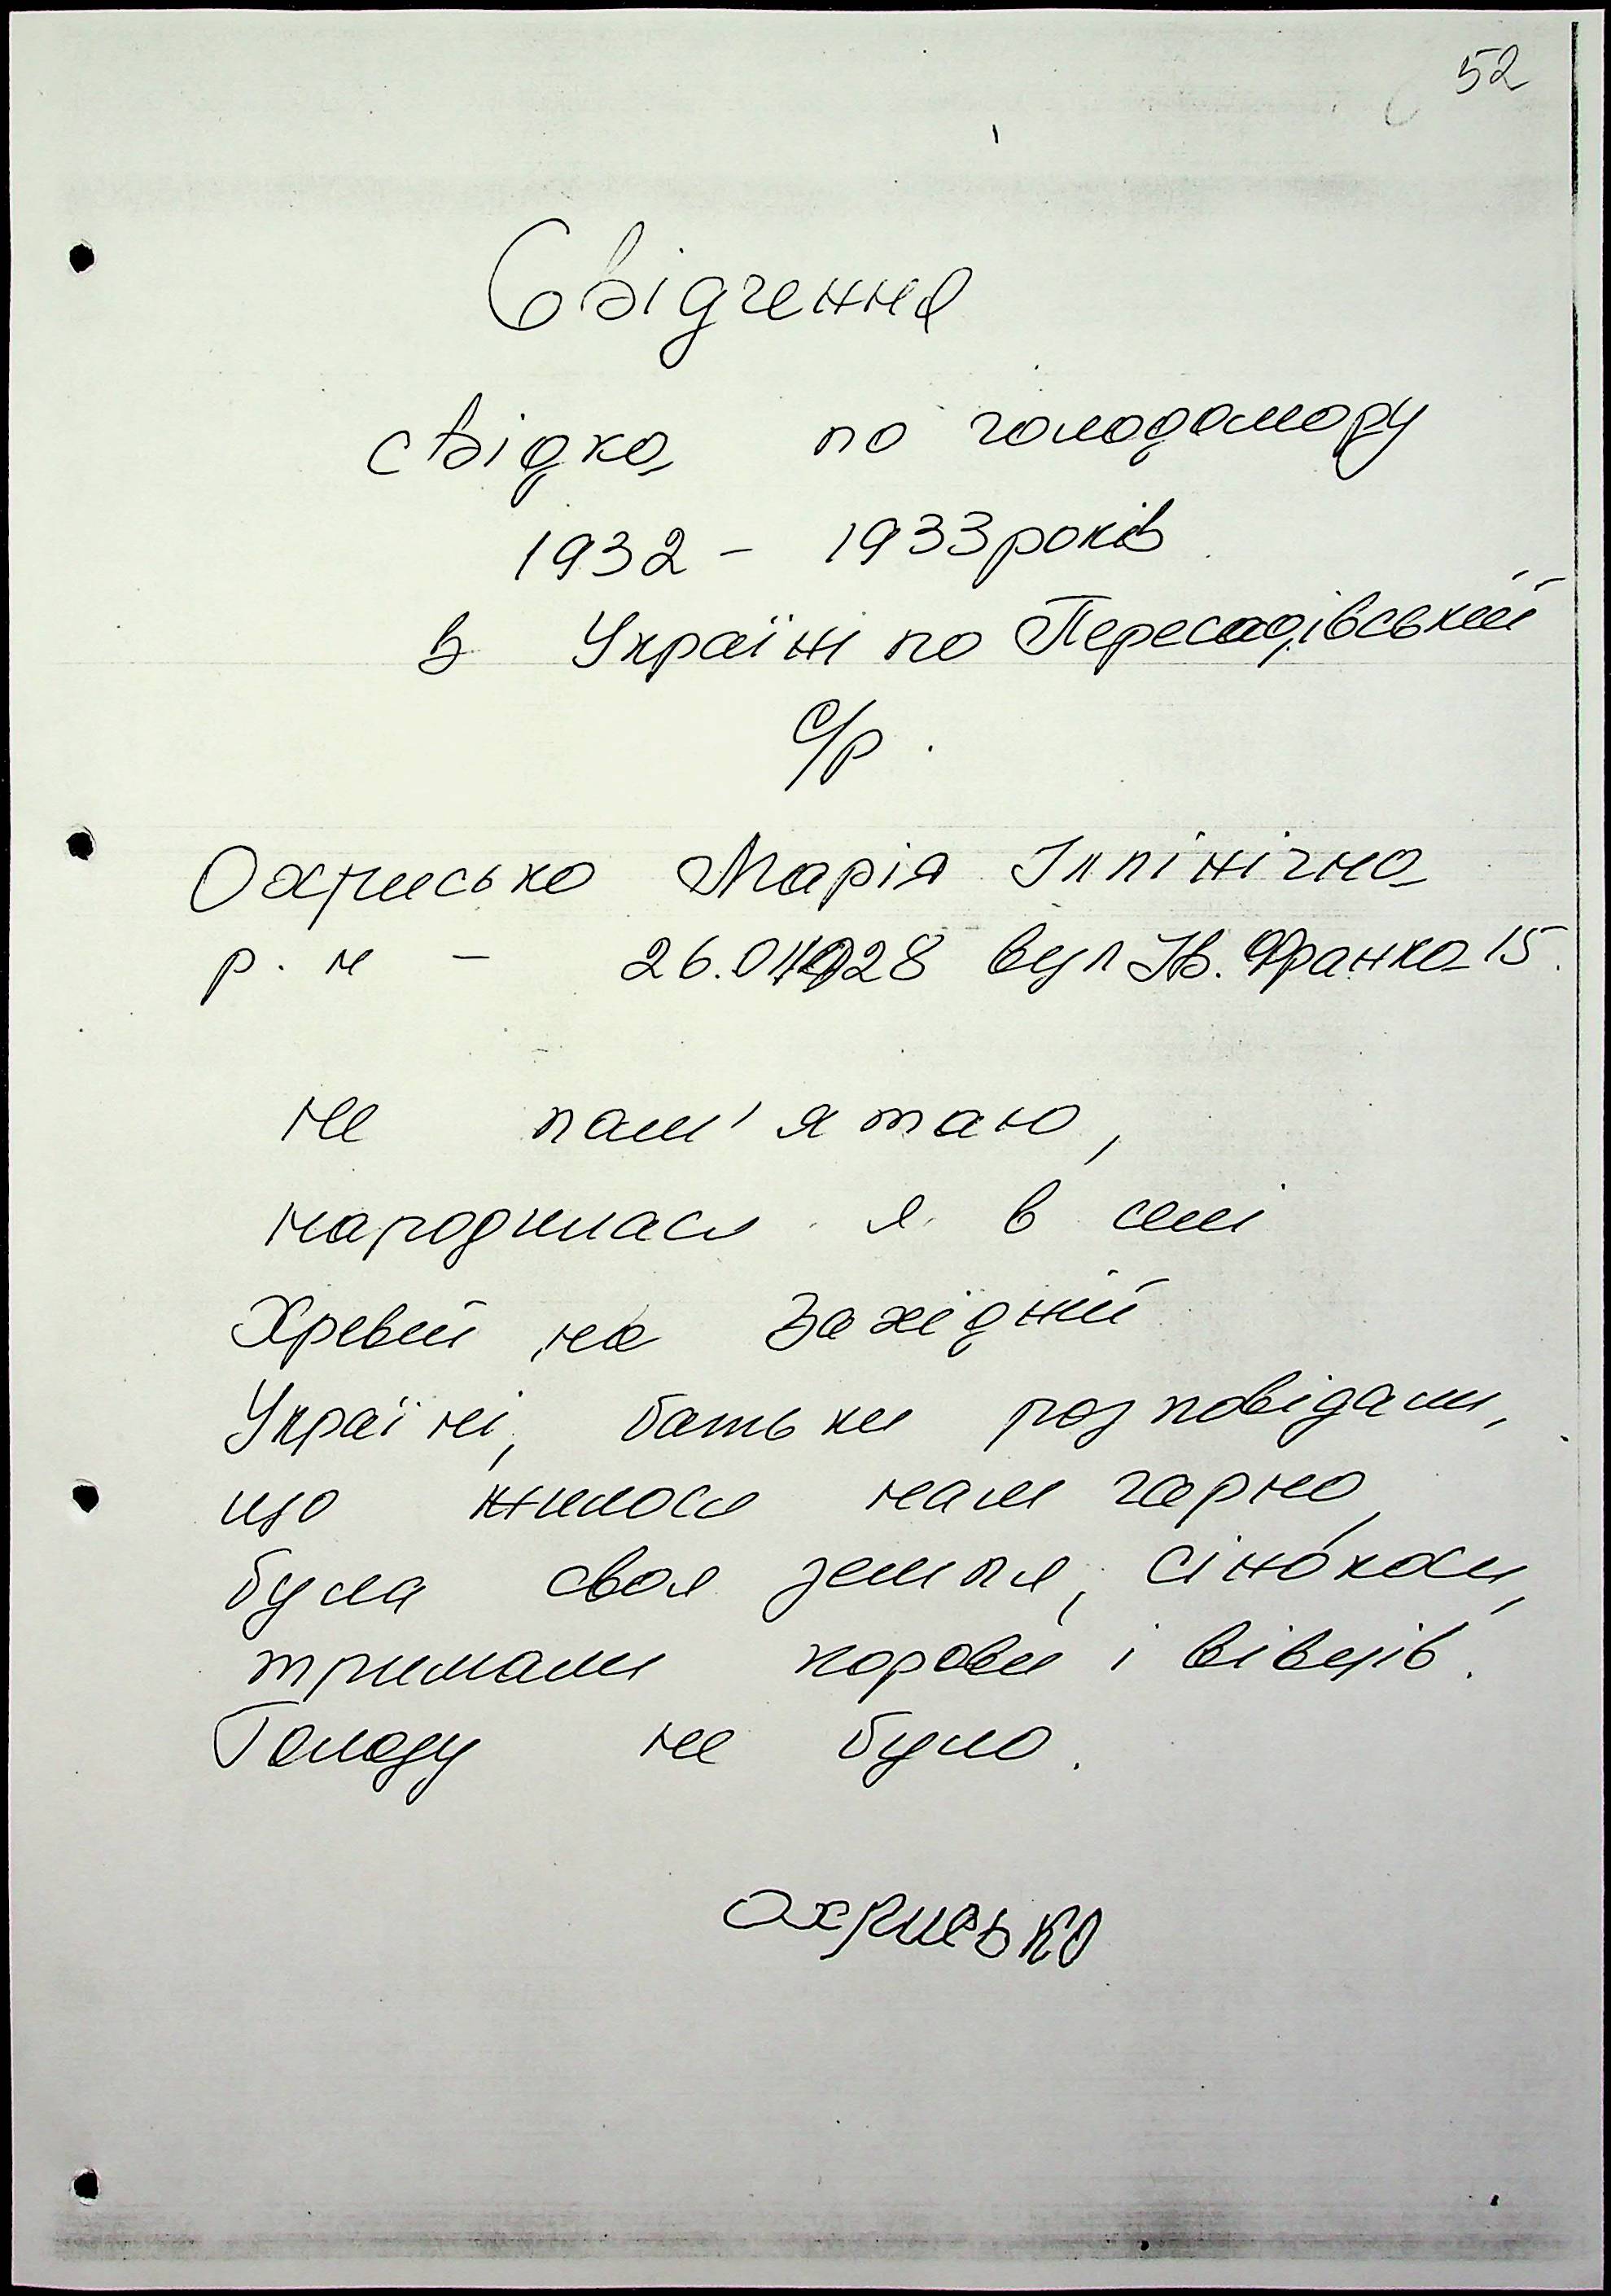 52
Свідчення
свідка по голодомору
1932 - 1933 років
в Україні по Пересадівській
с/р.
Охрисько Марія Іллінічна
р. н - 26.04.1928 вул Ів. Франка 15.
не пам'ятаю,
народилася я в селі
Хревій на Західній
Україні, батьки розповідали,
що жилося нам гарно,
була своя земля, сінокоси,
тримали корови і вівців.
Голоду не було.
Охрисько